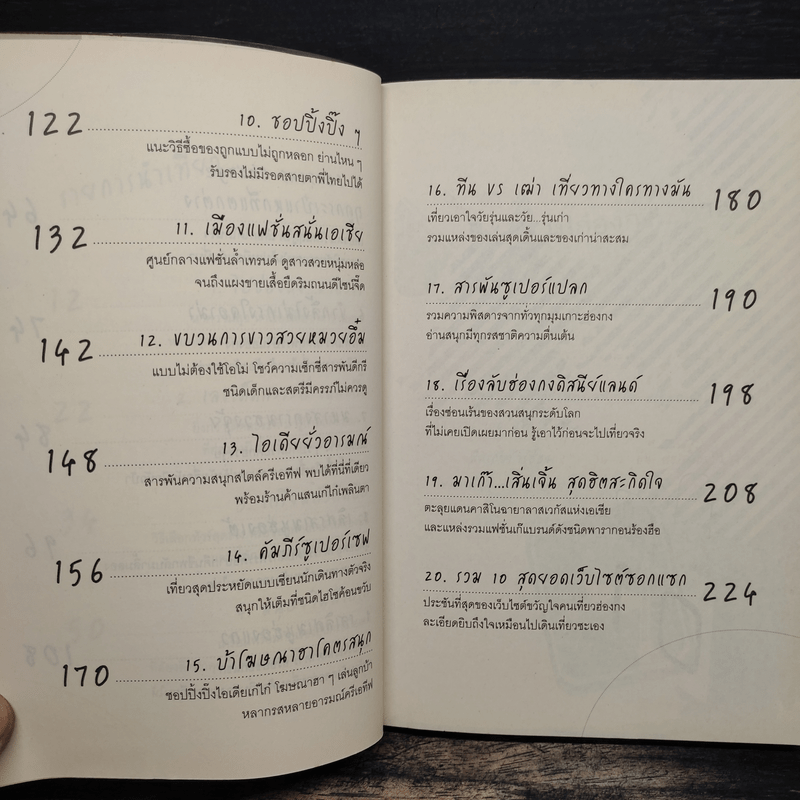 122
10. ชอปปิ้งปิ๊ง ๆ
แนะวิธีซื้อของถูกแบบไม่ถูกหลอก ย่านไหน ๆ
รับรองไม่มีรอดสายตาพี่ไทยไปได้
132
11. เมืองแฟชั่นสนั่นเอเชีย
ศูนย์กลางแฟชั่นล้ำเทรนด์ ดูสาวสวยหนุ่มหล่อ
จนถึงแผงขายเสื้อยืดริมถนนดีไซน์จี๊ด
142
12. ขบวนการขาวสวยหมวยอึ๋ม
แบบไม่ต้องใช้โอโม่ โชว์ความเซ็กซี่สารพันดีกรี
ชนิดเด็กและสตรีมีครรภ์ไม่ควรดู
148
13. ไอเดียยั่วอารมณ์
สารพันความสนุกสไตล์ครีเอทีฟ พบได้ที่นี่ที่เดียว
พร้อมร้านค้าแสนเก๋ไก๋เพลินตา
156
14. คัมภีร์ซูเปอร์เซฟ
เที่ยวสุดประหยัดแบบเซียนนักเดินทางตัวจริง
สนุกให้เต็มที่ชนิดไฮโซค้อนขวับ
170
15. บ้าโฆษณาฮาโคตรสนุก
ชอปปิ้งปิ๊งไอเดียเก๋ไก๋ โฆษณาฮา ๆ เล่นลูกบ้า
หลากรสหลายอารมณ์ครีเอทีฟ
16. ทีน VS เฒ่า เที่ยวทางใครทางมัน
180
เที่ยวเอาใจวัยรุ่นและวัย...รุ่นเก่า
รวมแหล่งของเล่นสุดเดิ้นและของเก่าน่าสะสม
17. สารพันซูเปอร์แปลก
190
รวมความพิสดารจากทั่วทุกมุมเกาะฮ่องกง
อ่านสนุกมีทุกรสชาติความตื่นเต้น
18. เรื่องลับฮ่องกงดิสนีย์แลนด์
198
เรื่องซ่อนเร้นของสวนสนุกระดับโลก
ที่ไม่เคยเปิดเผยมาก่อน รู้เอาไว้ก่อนจะไปเที่ยวจริง
19. มาเก๊า...เสิ่นเจิ้น สุดฮิตสะกิดใจ
208
ตะลุยแดนคาสิโนฉายาลาสเวกัสแห่งเอเชีย
และแหล่งรวมแฟชั่นเก๊แบรนด์ดังชนิดพารากอนร้องฮือ
20. รวม 10 สุดยอดเว็บไซต์ซอกแซก
224
ประชันที่สุดของเว็บไซต์ขวัญใจคนเที่ยวฮ่องกง
ละเอียดยิบถึงใจเหมือนไปเดินเที่ยวซะเอง